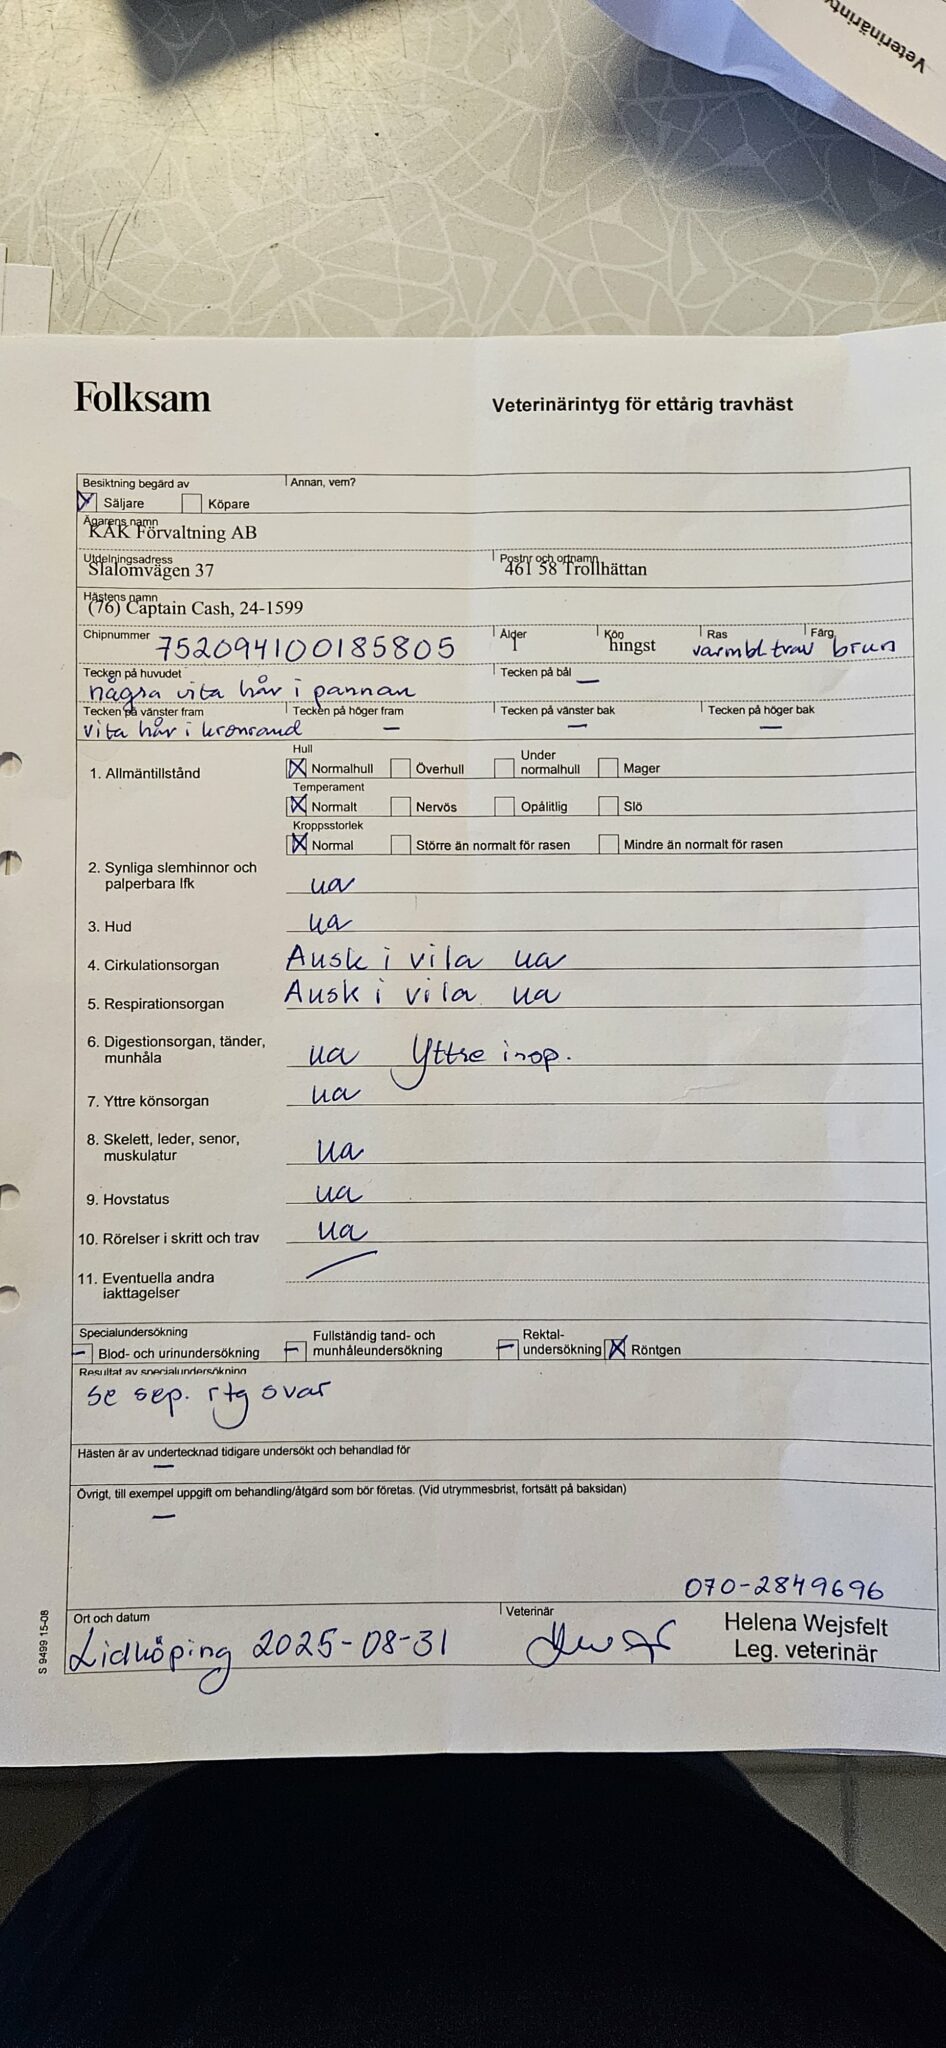 Veterinärinty
Folksam
Veterinärintyg för ettårig travhäst
Besiktning begärd av
Annan, vem?
Säljare Köpare
Ägarens namn
KAK Förvaltning AB
Utdelningsadress Postnr och ortnamn
Slalomvägen 37 461 58 Trollhättan
Hästens namn
(76) Captain Cash, 24-1599
Chipnummer 752094100185805 Ålder 1 Kön hingst Ras varmbl trav Färg brun
Tecken på huvudet Tecken på bål
några vita hår i pannan —
Tecken på vänster fram Tecken på höger fram Tecken på vänster bak Tecken på höger bak
vita hår i kronrand — — —
Hull
1. Allmäntillstånd X Normalhull Överhull Under normalhull Mager
Temperament
X Normalt Nervös Opålitlig Slö
Kroppsstorlek
X Normal Större än normalt för rasen Mindre än normalt för rasen
2. Synliga slemhinnor och
palperbara lfk ua
3. Hud ua
4. Cirkulationsorgan Ausk i vila ua
5. Respirationsorgan Ausk i vila ua
6. Digestionsorgan, tänder,
munhåla ua Yttre insp.
7. Yttre könsorgan ua
8. Skelett, leder, senor,
muskulatur ua
9. Hovstatus ua
10. Rörelser i skritt och trav ua
11. Eventuella andra
iakttagelser
Specialundersökning
— Blod- och urinundersökning — Fullständig tand- och munhåleundersökning — Rektal-undersökning X Röntgen
Resultat av specialundersökning
se sep. rtg svar
Hästen är av undertecknad tidigare undersökt och behandlad för
—
Övrigt, till exempel uppgift om behandling/åtgärd som bör företas. (Vid utrymmesbrist, fortsätt på baksidan)
—
070-2849696
Ort och datum Veterinär
Lidköping 2025-08-31
Helena Wejsfelt
Leg. veterinär
S 9499 15-08